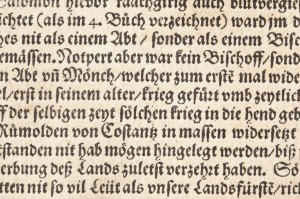 Salomon hievor raathgirig auch blutvergie
richtet (als im 4. Bůch verzeichnet) ward jm d
hes nit als einem Abt / sonder als einem Bisc
gemässen. Notpert aber war kein Bischoff / sonde
n Abt vñ Mönch / welcher zum erstē mal wide
el / erst in seinem alter / krieg gefürt vmb zeytlich
ff der selbigen zeyt sölchen krieg in die hend geb
Růmolden von Costantz in massen widersetzt
standen nit hab mögen hingelegt werden / biß
erbung deß Lands zuletst verzehrt haben. So
tten nit so vil Leüt als vnsere Landsfürstē / rich